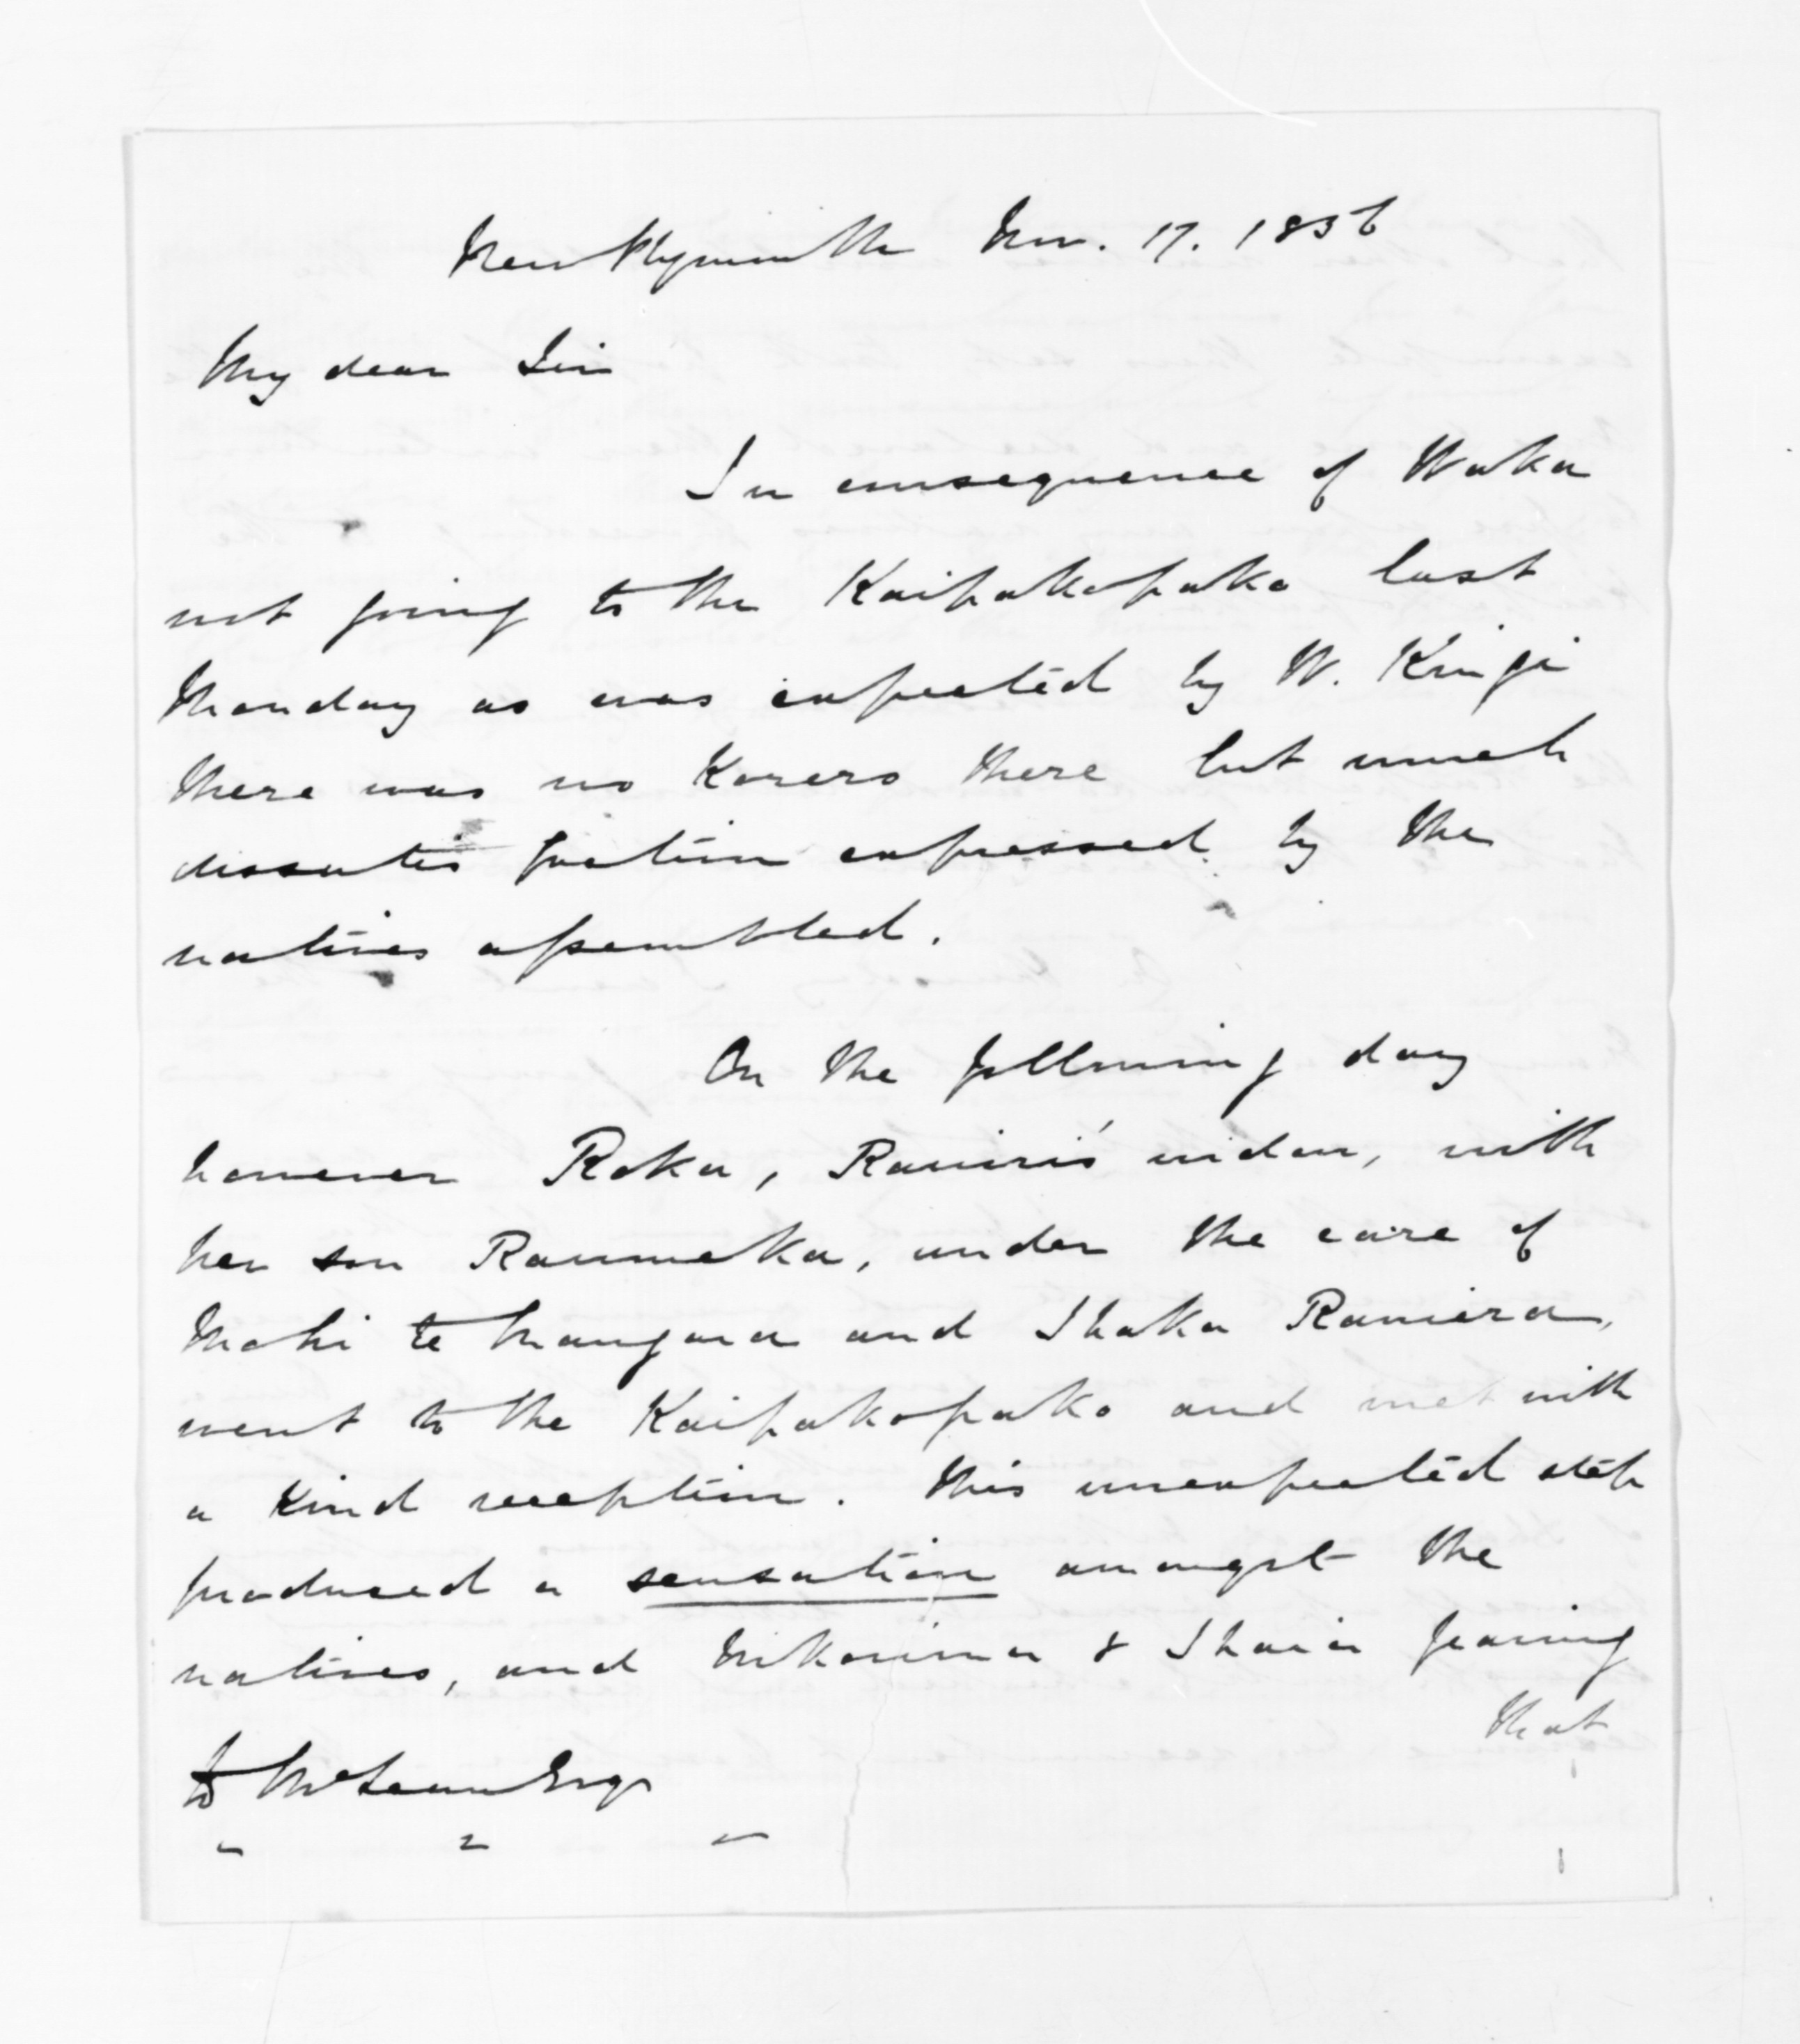 New Plymouth Nov. 17. 1856
My dear Sir
In consequence of Waka
not going to the Kaipakopako last
Monday as was expected by W. Kingi
there was no Korero there but much
dissatisfaction expressed by the
natives assembled.
On the following day
however Roka, Rawiri's widow, with
her son under the care of
Mahi te and Ihaka
went to the Kaipakopako and met with
a kind reception. This unexpected step
produced a sensation amongst the
natives, and Nikorima & Ihaia fearing
that
To McLean Esqr